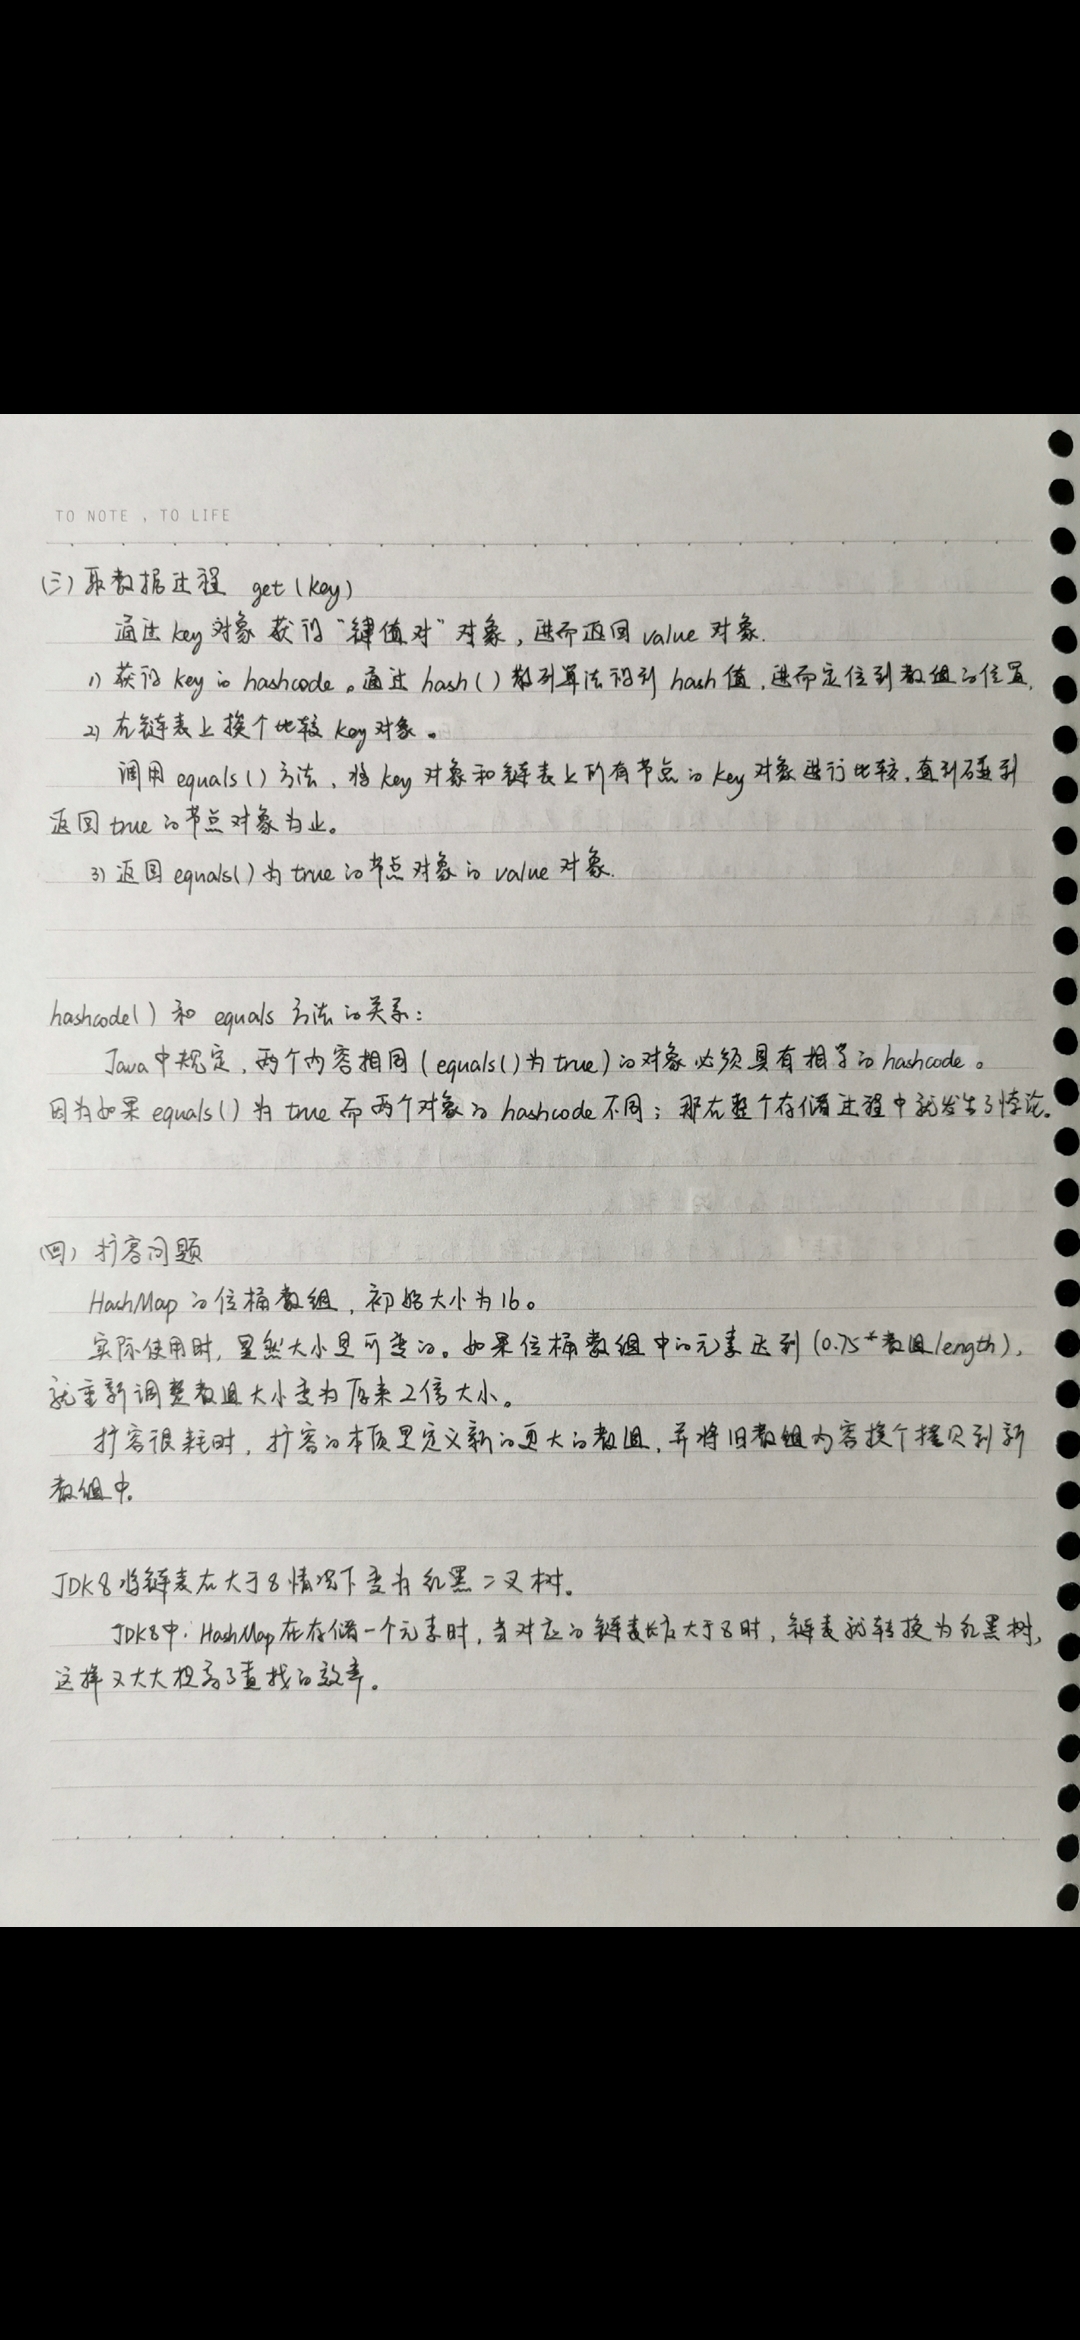 TO NOTE , TO LIFE
(三) 取数据过程 get(key)
通过 key 对象 获得 "键值对" 对象, 进而返回 value 对象.
1) 获得 key 的 hashcode。通过 hash() 散列算法得到 hash 值, 进而定位到数组的位置.
2) 在链表上挨个比较 key 对象。
调用 equals() 方法, 将 key 对象和链表上所有节点的 key 对象进行比较, 直到碰到
返回 true 的节点对象为止。
3) 返回 equals() 为 true 的节点对象的 value 对象.
hashcode() 和 equals 方法的关系:
Java中规定, 两个内容相同 (equals()为 true) 的对象必须具有相等的 hashcode。
因为如果 equals() 为 true 而两个对象的 hashcode 不同; 那在整个存储过程中就发生了悖论。
(四) 扩容问题
HashMap 的位桶数组, 初始大小为 16。
实际使用时, 显然大小是可变的。如果位桶数组中的元素达到 (0.75*数组length),
就重新调整数组大小变为原来2倍大小。
扩容很耗时, 扩容的本质是定义新的更大的数组, 并将旧数组内容挨个拷贝到新
数组中.
JDK8将链表在大于8情况下变为红黑二叉树.
JDK8中: HashMap在存储一个元素时, 当对应的链表长度大于8时, 链表就转换为红黑树,
这样又大大提高了查找的效率。